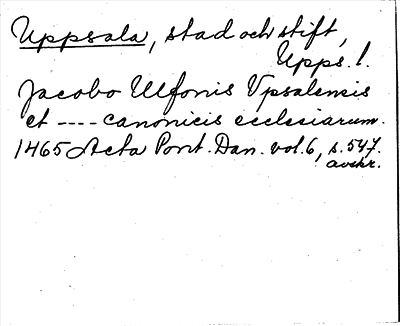 Uppsala, stad och stift,
Upps. l.
Jacobo Ulfonis Vpsalensis
et ---- canonicis ecclesiarum.
1465 Acta Pont. Dan. vol. 6, s. 547.
avskr.